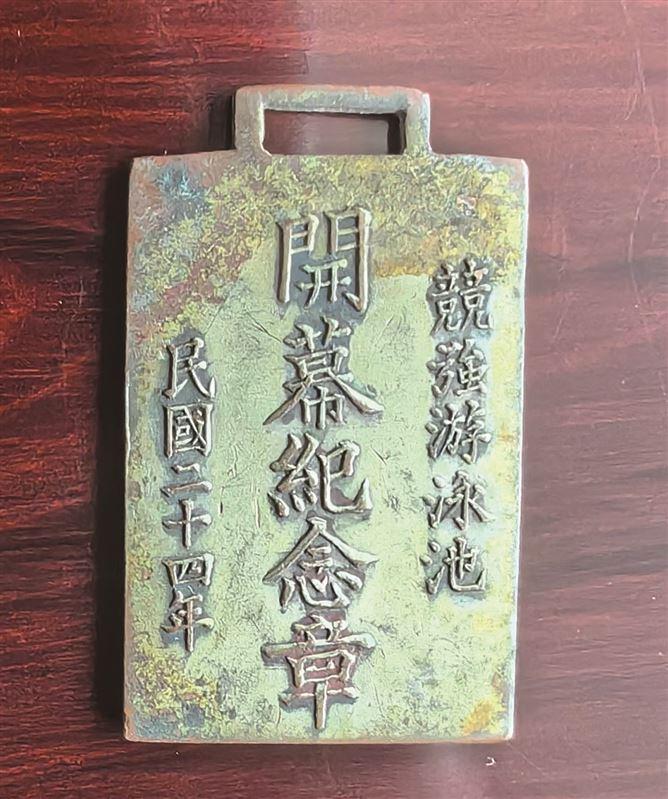 競强游泳池
開幕紀念章
民國二十四年